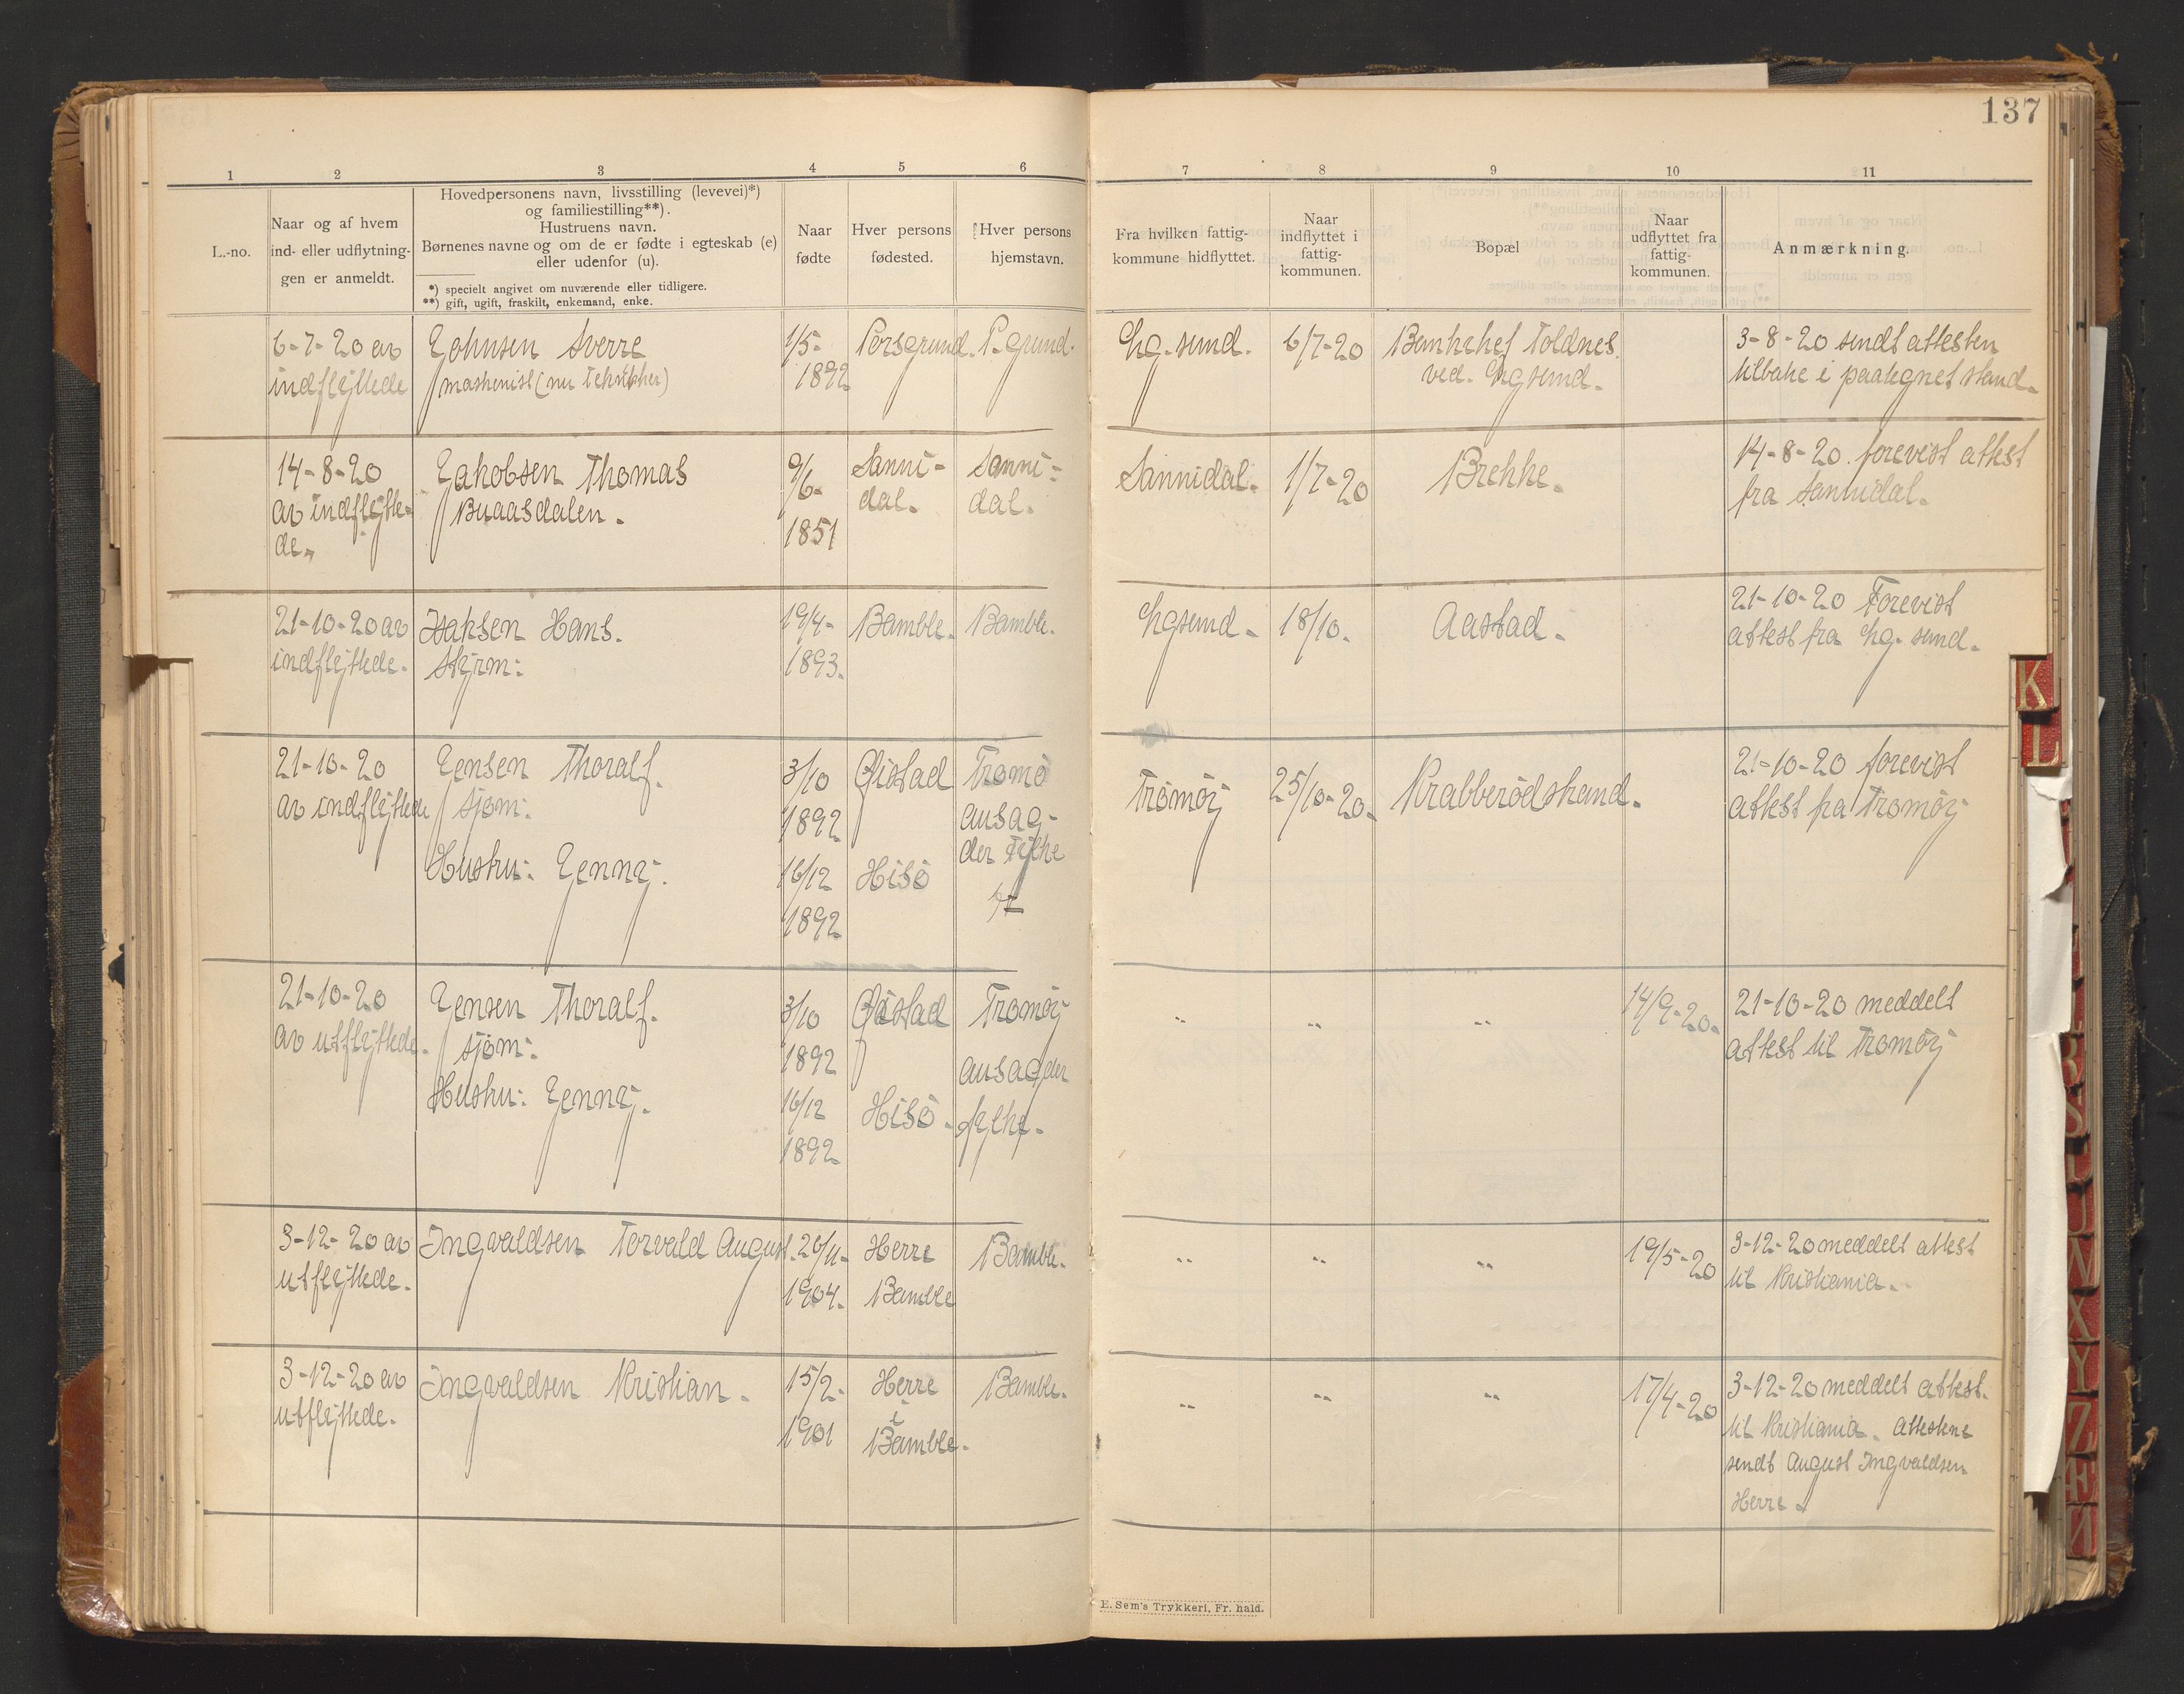 137
1 2 3 4 5 6 7 8 9 10 11
L.-no.
Naar og af hvem
ind- eller udflytnin-
gen er anmeldt.
Hovedpersonens navn, livsstilling (levevei)*)
og familiestilling**).
Hustruens navn.
Børnenes navne og om de er fødte i egteskab (e)
eller udenfor (u).
*) specielt angivet om nuværende eller tidligere.
**) gift, ugift, fraskilt, enkemand, enke.
Naar
fødte
Hver persons
fødested.
Hver persons
hjemstavn.
Fra hvilken fattig-
kommune hidflyttet.
Naar
indflyttet i
fattig-
kommunen.
Bopæl
Naar
udflyttet fra
fattig-
kommunen.
Anmærkning.
6-7-20 av
indflyttede
Johnsen Sverre
maskenist (nu tekniker)
1/5-
1892
Porsgrund.
P.grund.
Lg.sund.
6/7-20
Benkehel Toldnes.
ved. Lgsund.
3-8-20 sendt attesten
tilbake i paategnet stand.
14-8-20
av indflytte-
de.
Jakobsen Thomas
Buaasdalen.
9/6-
1851
Sanni-
dal.
Sanni-
dal.
Sannidal.
1/7-20
Brekke.
14-8-20. forevist attest
fra Sannidal.
21-10-20 av
indflyttede.
Isaksen Hans.
Styrm:
19/4-
1893.
Bamble.
Bamble.
Lgsund.
18/10.
Aastad.
21-10-20 Forevist
attest fra Lg. sund.
21-10-20
av indflyttede
Jensen Thoralf.
sjøm:
Hustru: Jenny.
3/10
1892
16/12
1892
Øistad
Hisö
Tromö
ausag-
der fylke
Tromöy
25/10-20.
Krabberödstrand.
21-10-20 forevist
attest fra Tromöy
21-10-20
av utflyttede.
Jensen Thoralf.
sjöm:
Hustru: Jenny.
3/10
1892
16/12
1892
Øistad
Hisö.
Tromöy
ausagder
fylke.
„ „ „
14/9-20.
21-10-20 meddelt
attest til Tromöy
3-12-20 av
utflyttede.
Ingvaldsen Torvald August.
26/11-
1904.
Herre
Bamble
Bamble.
„ „ „
19/5-20
3-12-20 meddelt attest
til Kristiania.
3-12-20 av
utflyttede.
Ingvaldsen Kristian.
15/2-
1901
Herre
i
Bamble.
Bamble.
„ „ „
17/4-20
3-12-20 meddelt attest.
til Kristiania. attestene
sendt August Ingvaldsen
Herre.
E. Sem's Trykkeri, Fr. hald.
K
L
X
Y
Z
Æ
Ø